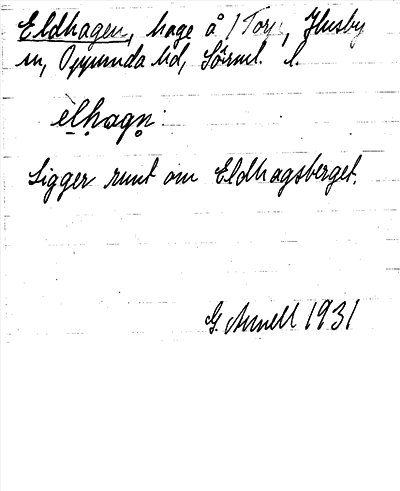 Eldhagen, hage å 1 Torp, Husby
sn, Oppunda hd, Sörml. l.
elhagn
Ligger runt om Eldhagsberget.
G. Arnell 1931